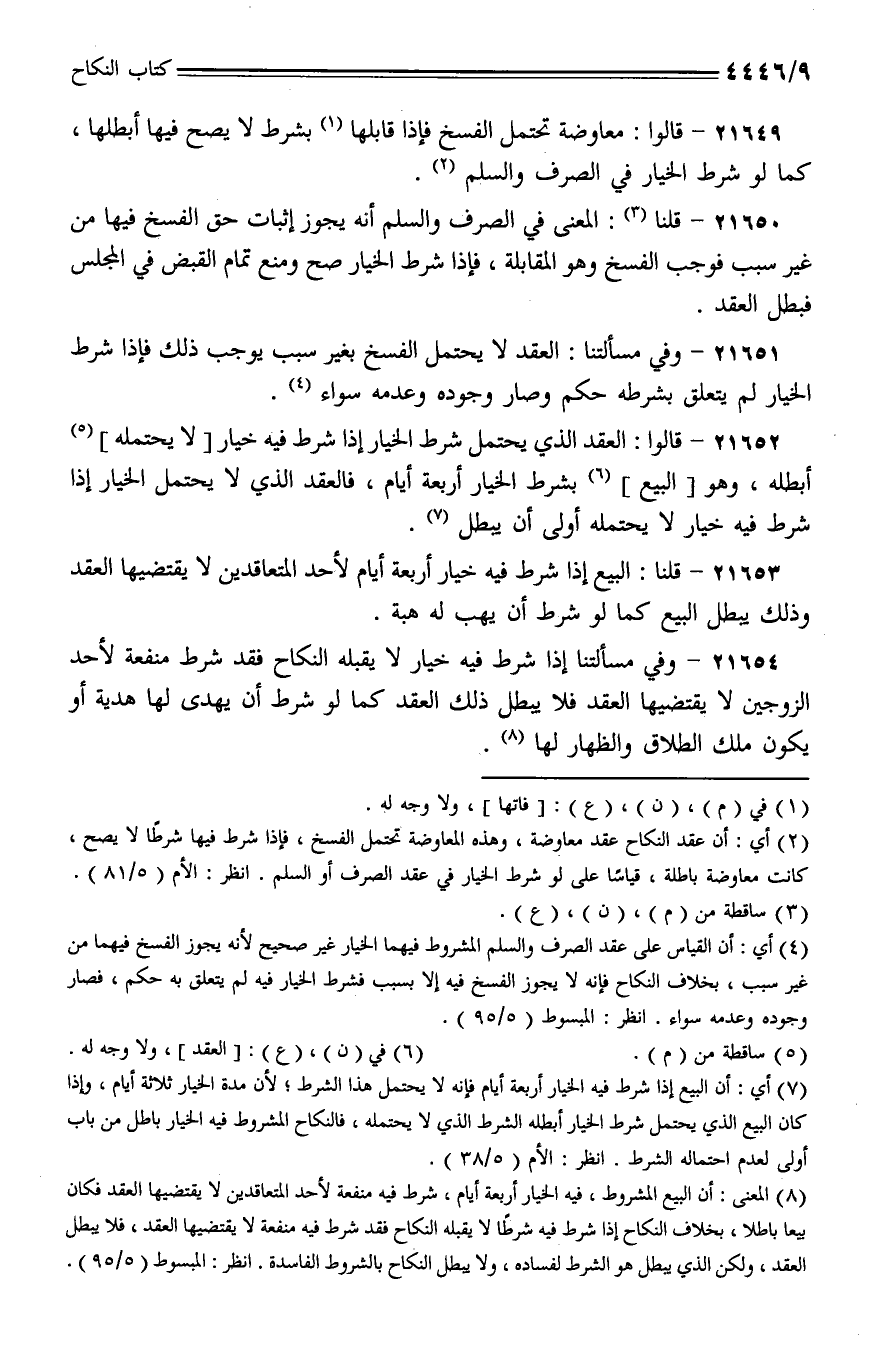 ٤٤٤٦/٩ كتاب النكاح
٢١٦٤٩ - قالوا : معاوضة تحتمل الفسخ فإذا قابلها (١) بشرط لا يصح فيها أبطلها ،
كما لو شرط الخيار في الصرف والسلم (٢) .
٢١٦٥٠ - قلنا (٣) : المعنى في الصرف والسلم أنه يجوز إثبات حق الفسخ فيها من
غير سبب فوجب الفسخ وهو المقابلة ، فإذا شرط الخيار صح ومنع تمام القبض في المجلس
فبطل العقد .
٢١٦٥١ - وفي مسألتنا : العقد لا يحتمل الفسخ بغير سبب يوجب ذلك فإذا شرط
الخيار لم يتعلق بشرطه حكم وصار وجوده وعدمه سواء (٤) .
٢١٦٥٢ - قالوا : العقد الذي يحتمل شرط الخيار إذا شرط فيه خيار [ لا يحتمله ] (٥)
أبطله ، وهو [ البيع ] (٦) بشرط الخيار أربعة أيام ، فالعقد الذي لا يحتمل الخيار إذا
شرط فيه خيار لا يحتمله أولى أن يبطل (٧) .
٢١٦٥٣ - قلنا : البيع إذا شرط فيه خيار أربعة أيام لأحد المتعاقدين لا يقتضيها العقد
وذلك يبطل البيع كما لو شرط أن يهب له هبة .
٢١٦٥٤ - وفي مسألتنا إذا شرط فيه خيار لا يقبله النكاح فقد شرط منفعة لأحد
الزوجين لا يقتضيها العقد فلا يبطل ذلك العقد كما لو شرط أن يهدى لها هدية أو
يكون ملك الطلاق والظهار لها (٨) .
(١) في ( م ) ، ( ن ) ، ( ع ) : [ فاتها ] ، ولا وجه له .
(٢) أي : أن عقد النكاح عقد معاوضة ، وهذه المعاوضة تحتمل الفسخ ، فإذا شرط فيها شرطًا لا يصح ،
كانت معاوضة باطلة ، قياسًا على لو شرط الخيار في عقد الصرف أو السلم . انظر : الأم ( ٨١/٥ ) .
(٣) ساقطة من ( م ) ، ( ن ) ، ( ع ) .
(٤) أي : أن القياس على عقد الصرف والسلم المشروط فيهما الخيار غير صحيح لأنه يجوز الفسخ فيهما من
غير سبب ، بخلاف النكاح فإنه لا يجوز الفسخ فيه إلا بسبب فشرط الخيار فيه لم يتعلق به حكم ، فصار
وجوده وعدمه سواء . انظر : المبسوط ( ٩٥/٥ ) .
(٥) ساقطة من ( م ) . (٦) في ( ن ) ، ( ع ) : [ العقد ] ، ولا وجه له .
(٧) أي : أن البيع إذا شرط فيه الخيار أربعة أيام فإنه لا يحتمل هذا الشرط ؛ لأن مدة الخيار ثلاثة أيام ، وإذا
كان البيع الذي يحتمل شرط الخيار أبطله الشرط الذي لا يحتمله ، فالنكاح المشروط فيه الخيار باطل من باب
أولى لعدم احتماله الشرط . انظر : الأم ( ٣٨/٥ ) .
(٨) المعنى : أن البيع المشروط ، فيه الخيار أربعة أيام ، شرط فيه منفعة لأحد المتعاقدين لا يقتضيها العقد فكان
بيعا باطلا ، بخلاف النكاح إذا شرط فيه شرطًا لا يقبله النكاح فقد شرط فيه منفعة لا يقتضيها العقد ، فلا يبطل
العقد ، ولكن الذي يبطل هو الشرط لفساده ، ولا يبطل النكاح بالشروط الفاسدة . انظر : المبسوط ( ٩٥/٥ ) .